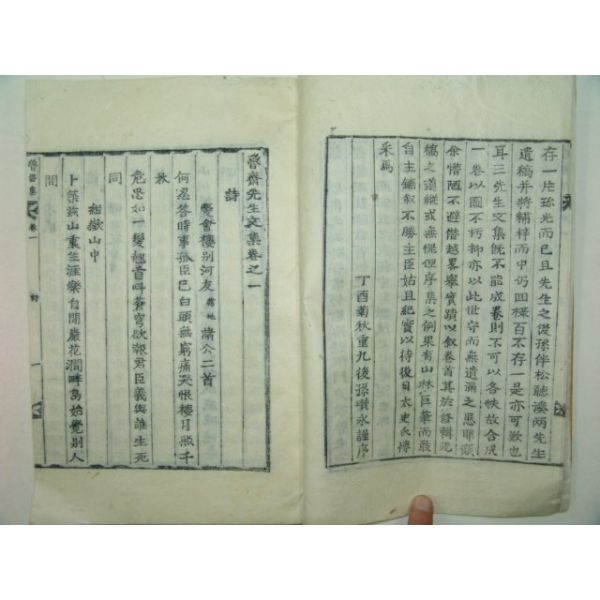 存一片珎光而已且先生之後孫伴松聽溪兩先生
遺稿并將輔梓而中仍回樣百不存一是亦可歎也
耳三先生文集旣不能成卷則不可以各帙故合成
一卷以圖不朽抑亦以此世守而無遺漏之思耶顧
余惛陋不避僭越畧擧實蹟以叙卷首其於修輯先
稿之道縱或無愧但序集之例果有山林巨筆而嚴
自主鋪叙不勝主臣姑且紀實以待後日太史氏博
采焉
丁酉菊秋重九後孫瓚永謹序
魯齋先生文集卷之一
詩
愛會樓別河友 諸公二首
何忍答時事孤臣已白頭無窮痛天恨樓月照千
秋
危忠如一髮翹首呌蒼穹欲報君臣義與誰生死
同
紺嶽山中
卜築茲山重生涯樂自閒巖花澗畔鳥始覺別人
間
魯齋集
卷一